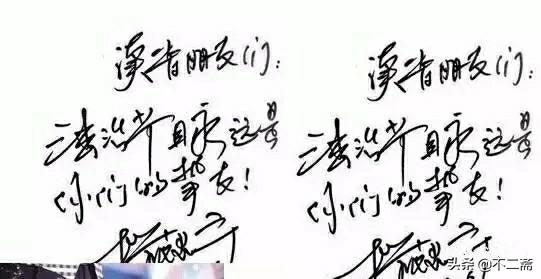 读者朋友们:
法治节目永远是
你们的挚友!
读者朋友们:
法治节目永远是
你们的挚友!
头条 @不二斋